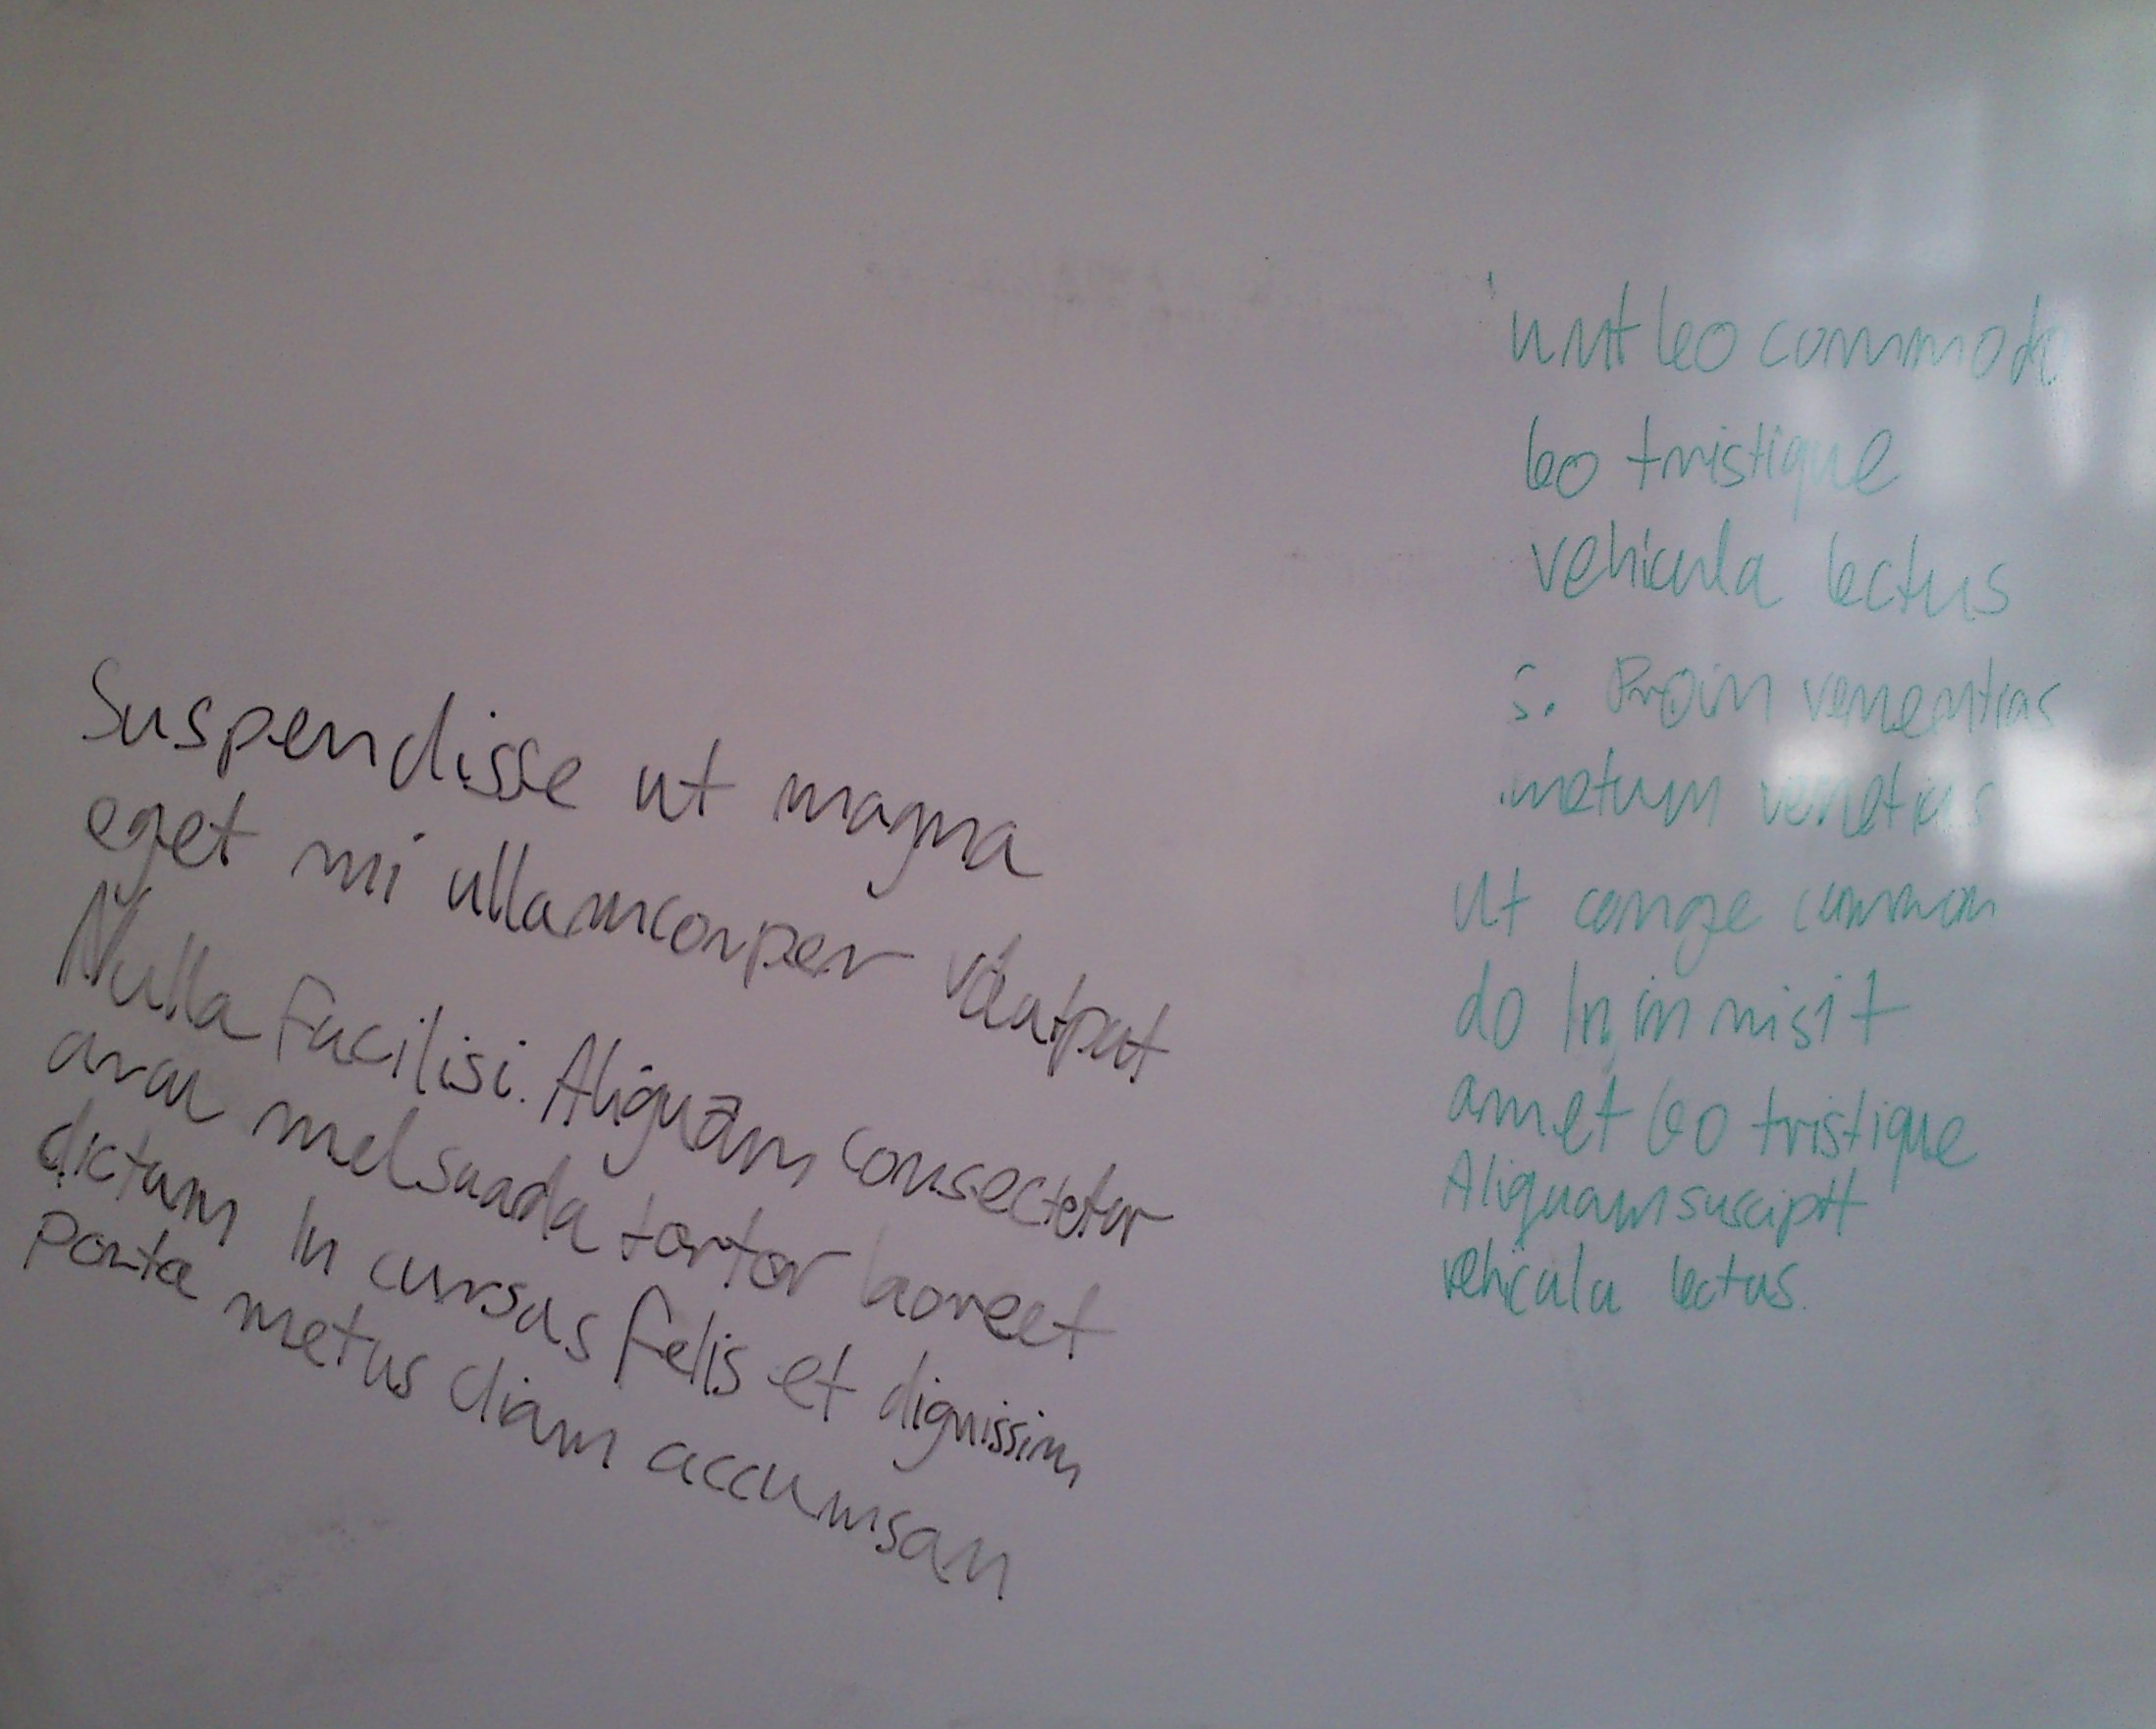 Suspendisse ut magna
eget mi ullamcorper volutpat
Nulla facilisi. Aliquam consectetur
arcu melsuada tortor laoreet
dictum In cursus felis et dignissim
Porta metus diam accumsan
leo commodo
leo tristique
vehicula lectus
s. Proin
metum
Ut conge common
do In in nisi t
amet leo tristique
Aliquam suscipit
vehicula lectus.